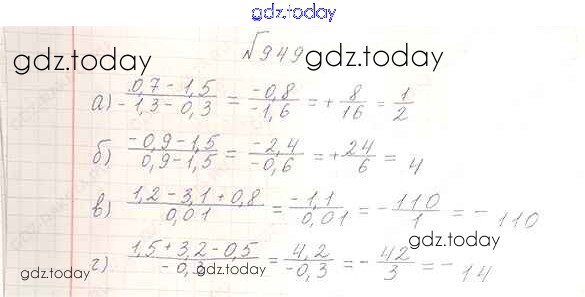 gdz.today
№949
gdz.today gdz.today
а) (0,7 - 1,5)/(-1,3 - 0,3) = (-0,8)/(-1,6) = + 8/16 = 1/2
б) (-0,9 - 1,5)/(0,9 - 1,5) = (-2,4)/(-0,6) = + 24/6 = 4
в) (1,2 - 3,1 + 0,8)/(0,01) = (-1,1)/(0,01) = - 110/1 = - 110
gdz.today
г) (1,5 + 3,2 - 0,5)/(-0,3) = (4,2)/(-0,3) = - 42/3 = - 14
gdz.today gdz.today